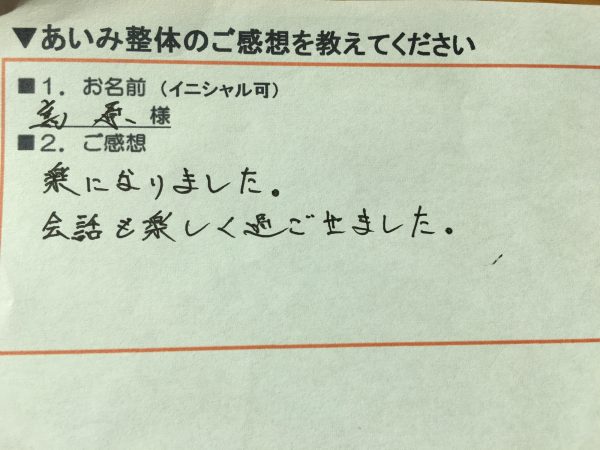 ▼あいみ整体のご感想を教えてください
■1．お名前（イニシャル可）
高原 様
■2．ご感想
楽になりました。
会話も楽しく過ごせました。